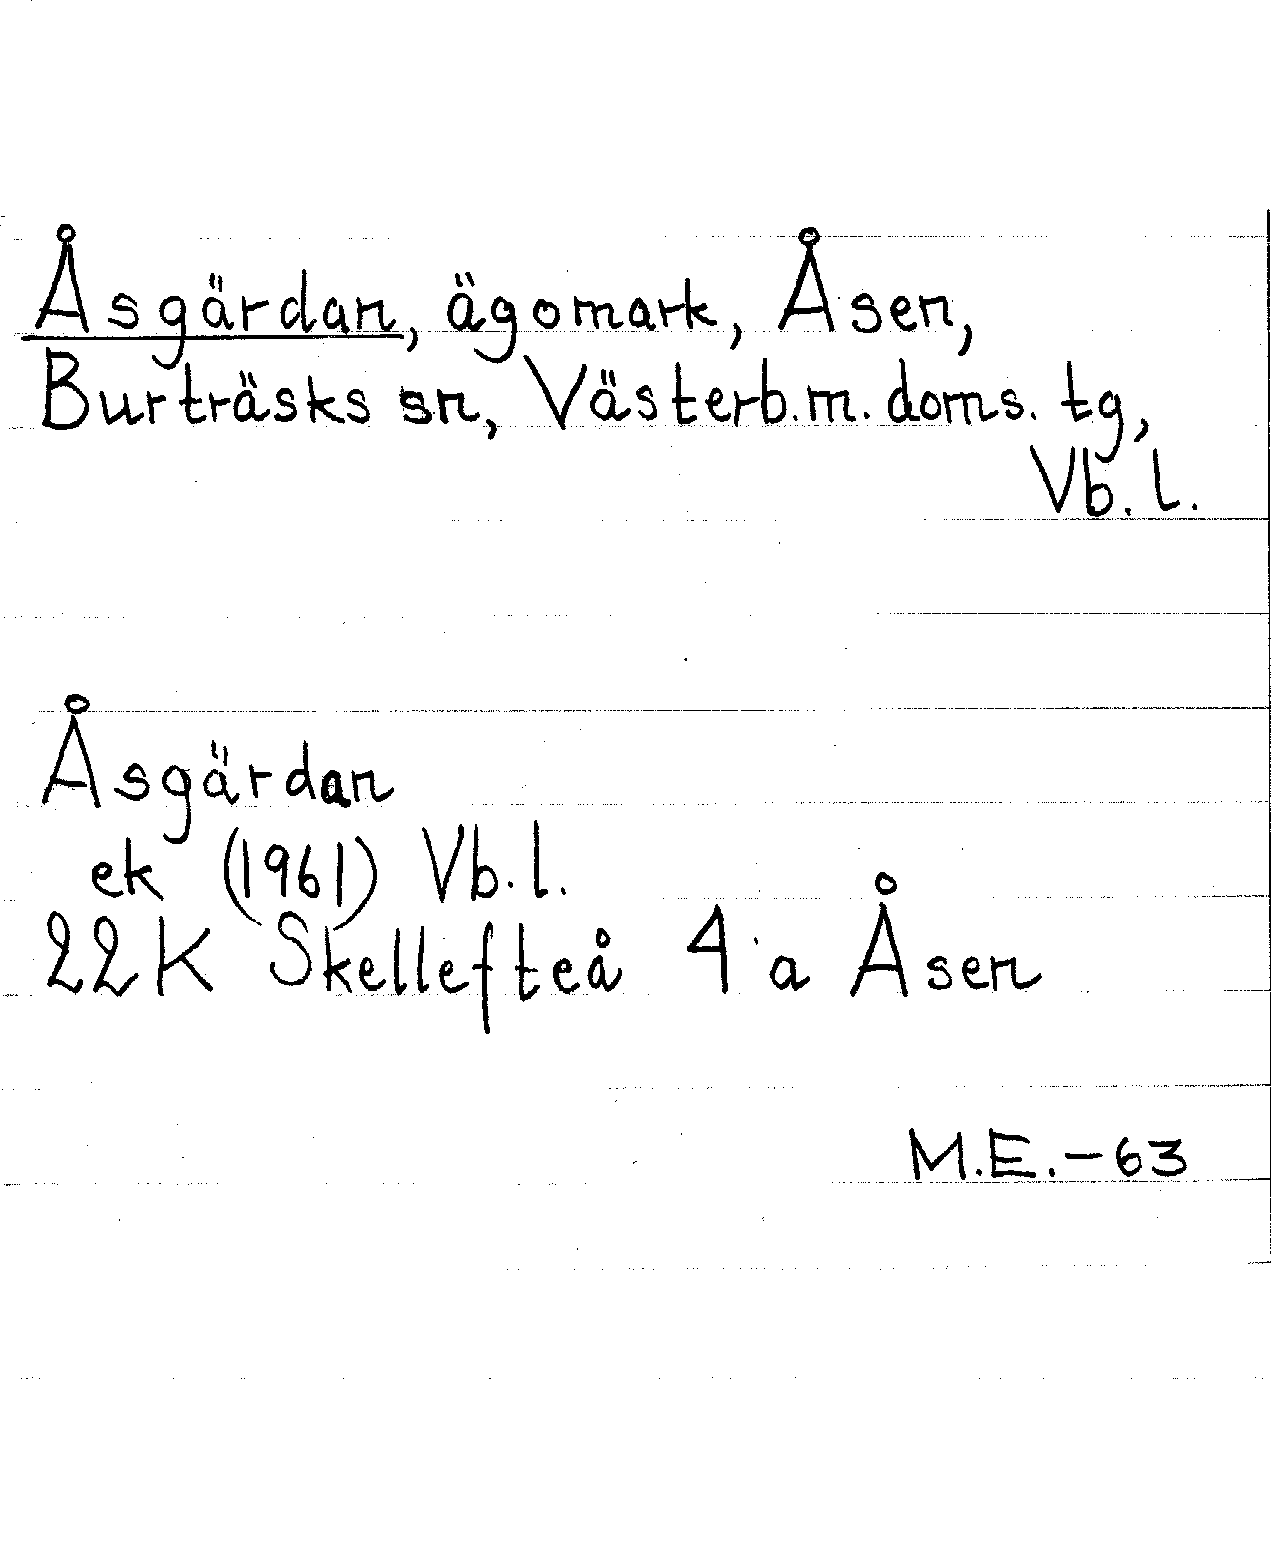 Åsgärdan, ägomark, Åsen,
Burträsks sn, Västerb.m. doms. tg,
Vb. l.
Åsgärdan
ek (1961) Vb. l.
22K Skellefteå 4 a Åsen
M.E. - 63